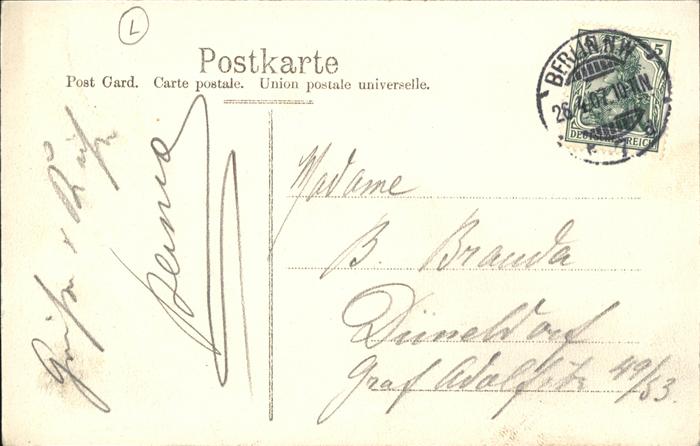 L
Postkarte
Post Card. Carte postale. Union postale universelle.
BERLIN N.W.
5
26.4.07. 10-11N
DEUTSCHES REICH
a
Madame
B. Branda
Düsseldorf
Graf Adolfstr 49/53.